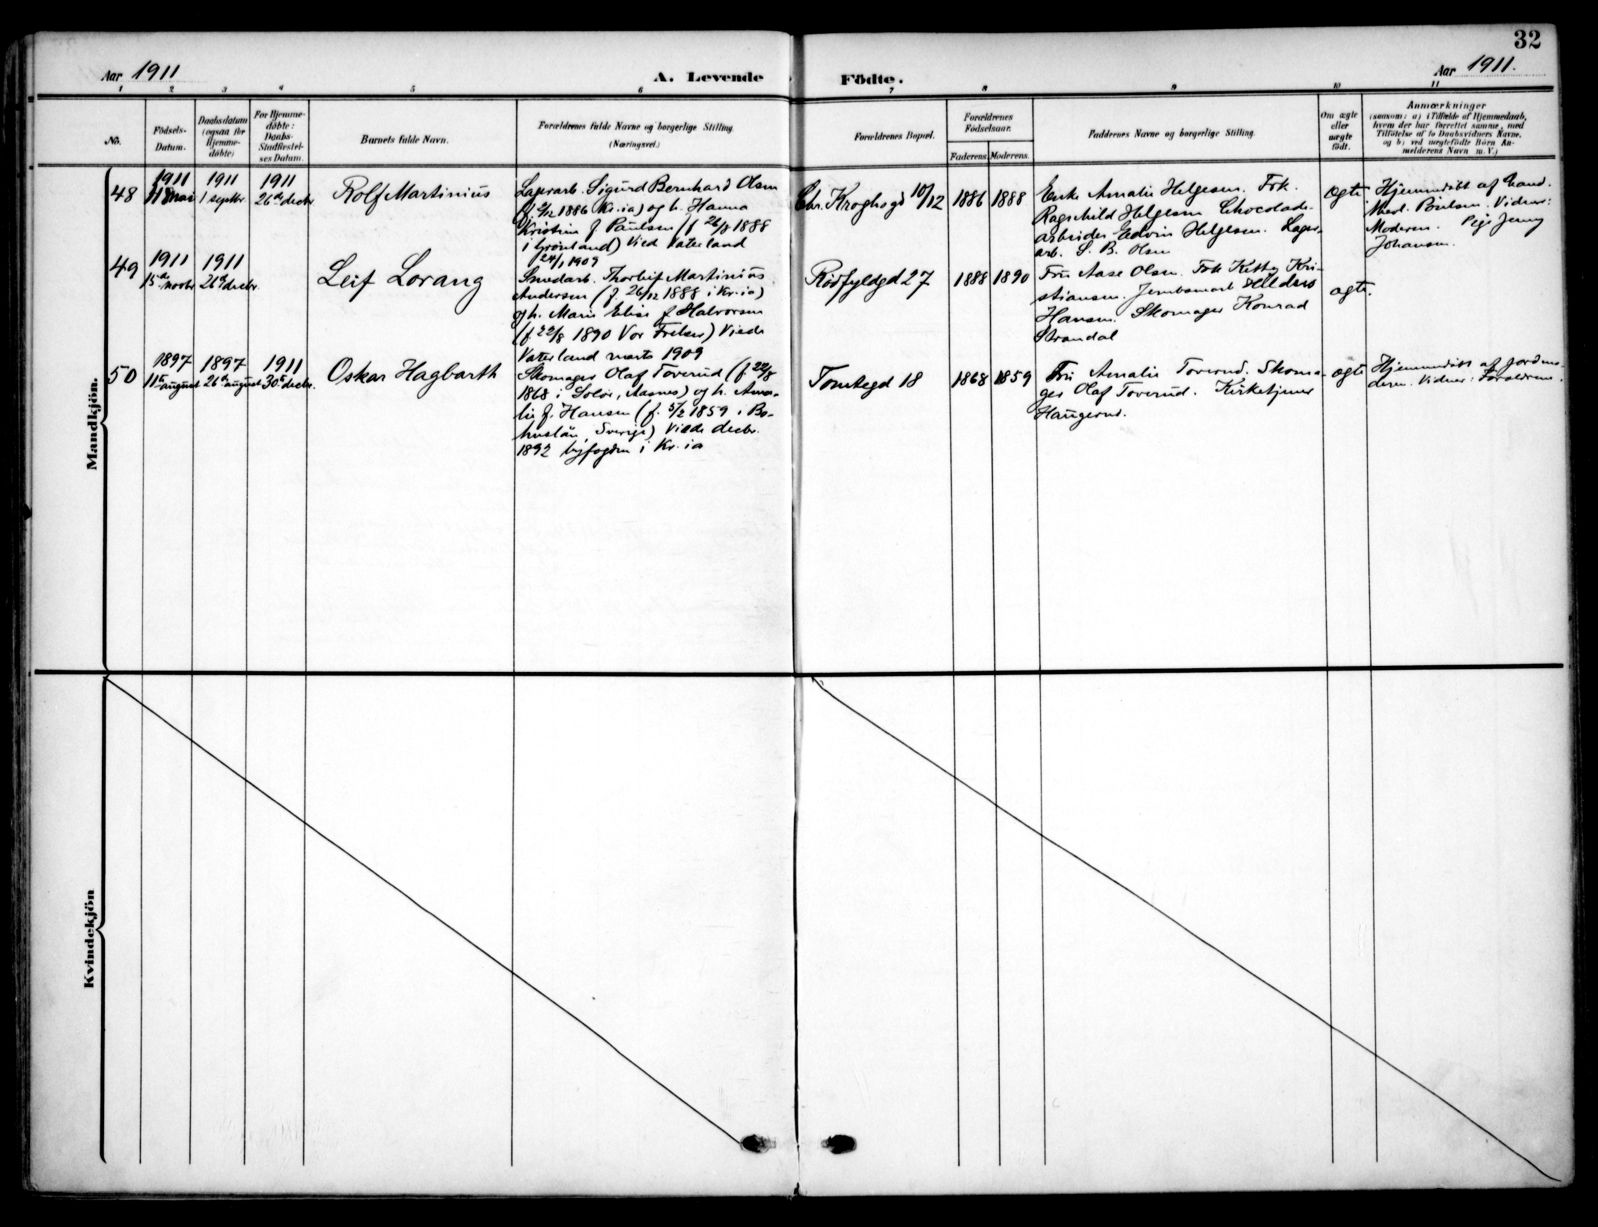 32
Aar 1911
A. Levende Födte.
Aar 1911.
1 2 3 4 5 6 7 8 9 10 11
No.
Födsels-
Datum.
Daabsdatum
(ogsaa for
Hjemme-
døbte)
For Hjemme-
døbte:
Daabs-
Stadfæstel-
ses Datum.
Barnets fulde Navn.
Forældrenes fulde Navne og borgerlige Stilling
(Næringsvei.)
Forældrenes Bopæl.
Forældrenes
Födselsaar.
Faderens. Moderens.
Faddernes Navne og borgerlige Stilling.
Om ægte
eller
uægte
født.
Anmærkninger
(saasom: a) i Tilfælde af Hjemmedaab,
hvem der har forrettet samme, med
Tilföielse af to Daabsvidners Navne,
og b) ved uægtefödte Börn An-
melderens Navn m. V.)
Mandkjön.
48
1911
1911
1 septbr
1911
26de decbr.
Rolf Martinius
Lagerarb. Sigurd Bernhard Olsen
(f. 2/12 1886 Kr.ia) og h. Hanna
Kristine f. Paulsen (f 26/8 1888
i Grönland) Viede Vaterland
24/1 1909
Chr. Kroghsgd 10/12
1886 1888
Enke Amalie Helgesen. Frk.
Ragnhild Helgesen Chocolade-
arbeider Edvin Helgesen. Lager-
arb. S. B. Olsen
ægte
Hjemmedöbt af
Vidner:
Moderen. Pige Jenny
Johansen.
49
1911
15de novbr
1911
26de decbr.
Leif Lorang
Thorleif Martinius
Andersen (f. 26/12 1888 i Kr.ia)
og h. Marie Elise f Halvorsen
(f 22/8 1890 Vor Frelser) Viede
Vaterland marts 1909
Rödfyldgd 27
1888 1890
Fru Aase Olsen. Frk Ketty Kri-
stiansen.
Hansen. Skomager Konrad
Strandal
ægte.
50
1897
11te august
1897
26de august
1911
30te decbr.
Oskar Hagbarth
Skomager Olaf Toverud (f 22/8
1868 i Solör, Aasnes) og h. Ama-
lie f. Hansen (f. 5/2 1859 i Bo-
huslän, Sverige) Viede decbr.
1892 byfogden i Kr.ia
Tomtegd 18
1868 1859
Fru Amalie Toverud. Skoma-
ger Olaf Toverud. Kirketjener
Haugerud.
ægte
Hjemmedöbt af jordmo-
deren. Vidner: Forældrene.
Kvindekjön